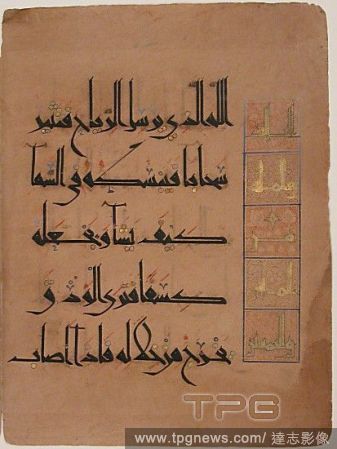 الله الذي يرسل الرياح فتثير
سحابا فيبسطه في السما
كيف يشا ويجعله
كسفا فترى الودق
يخرج من خلاله فاذا اصاب
TPG
www.tpgnews.com/ 達志影像